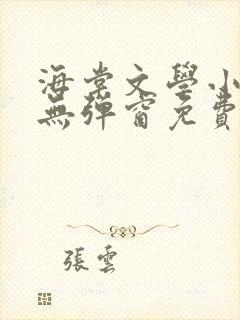 海棠文學小
無彈窗免費
張雲